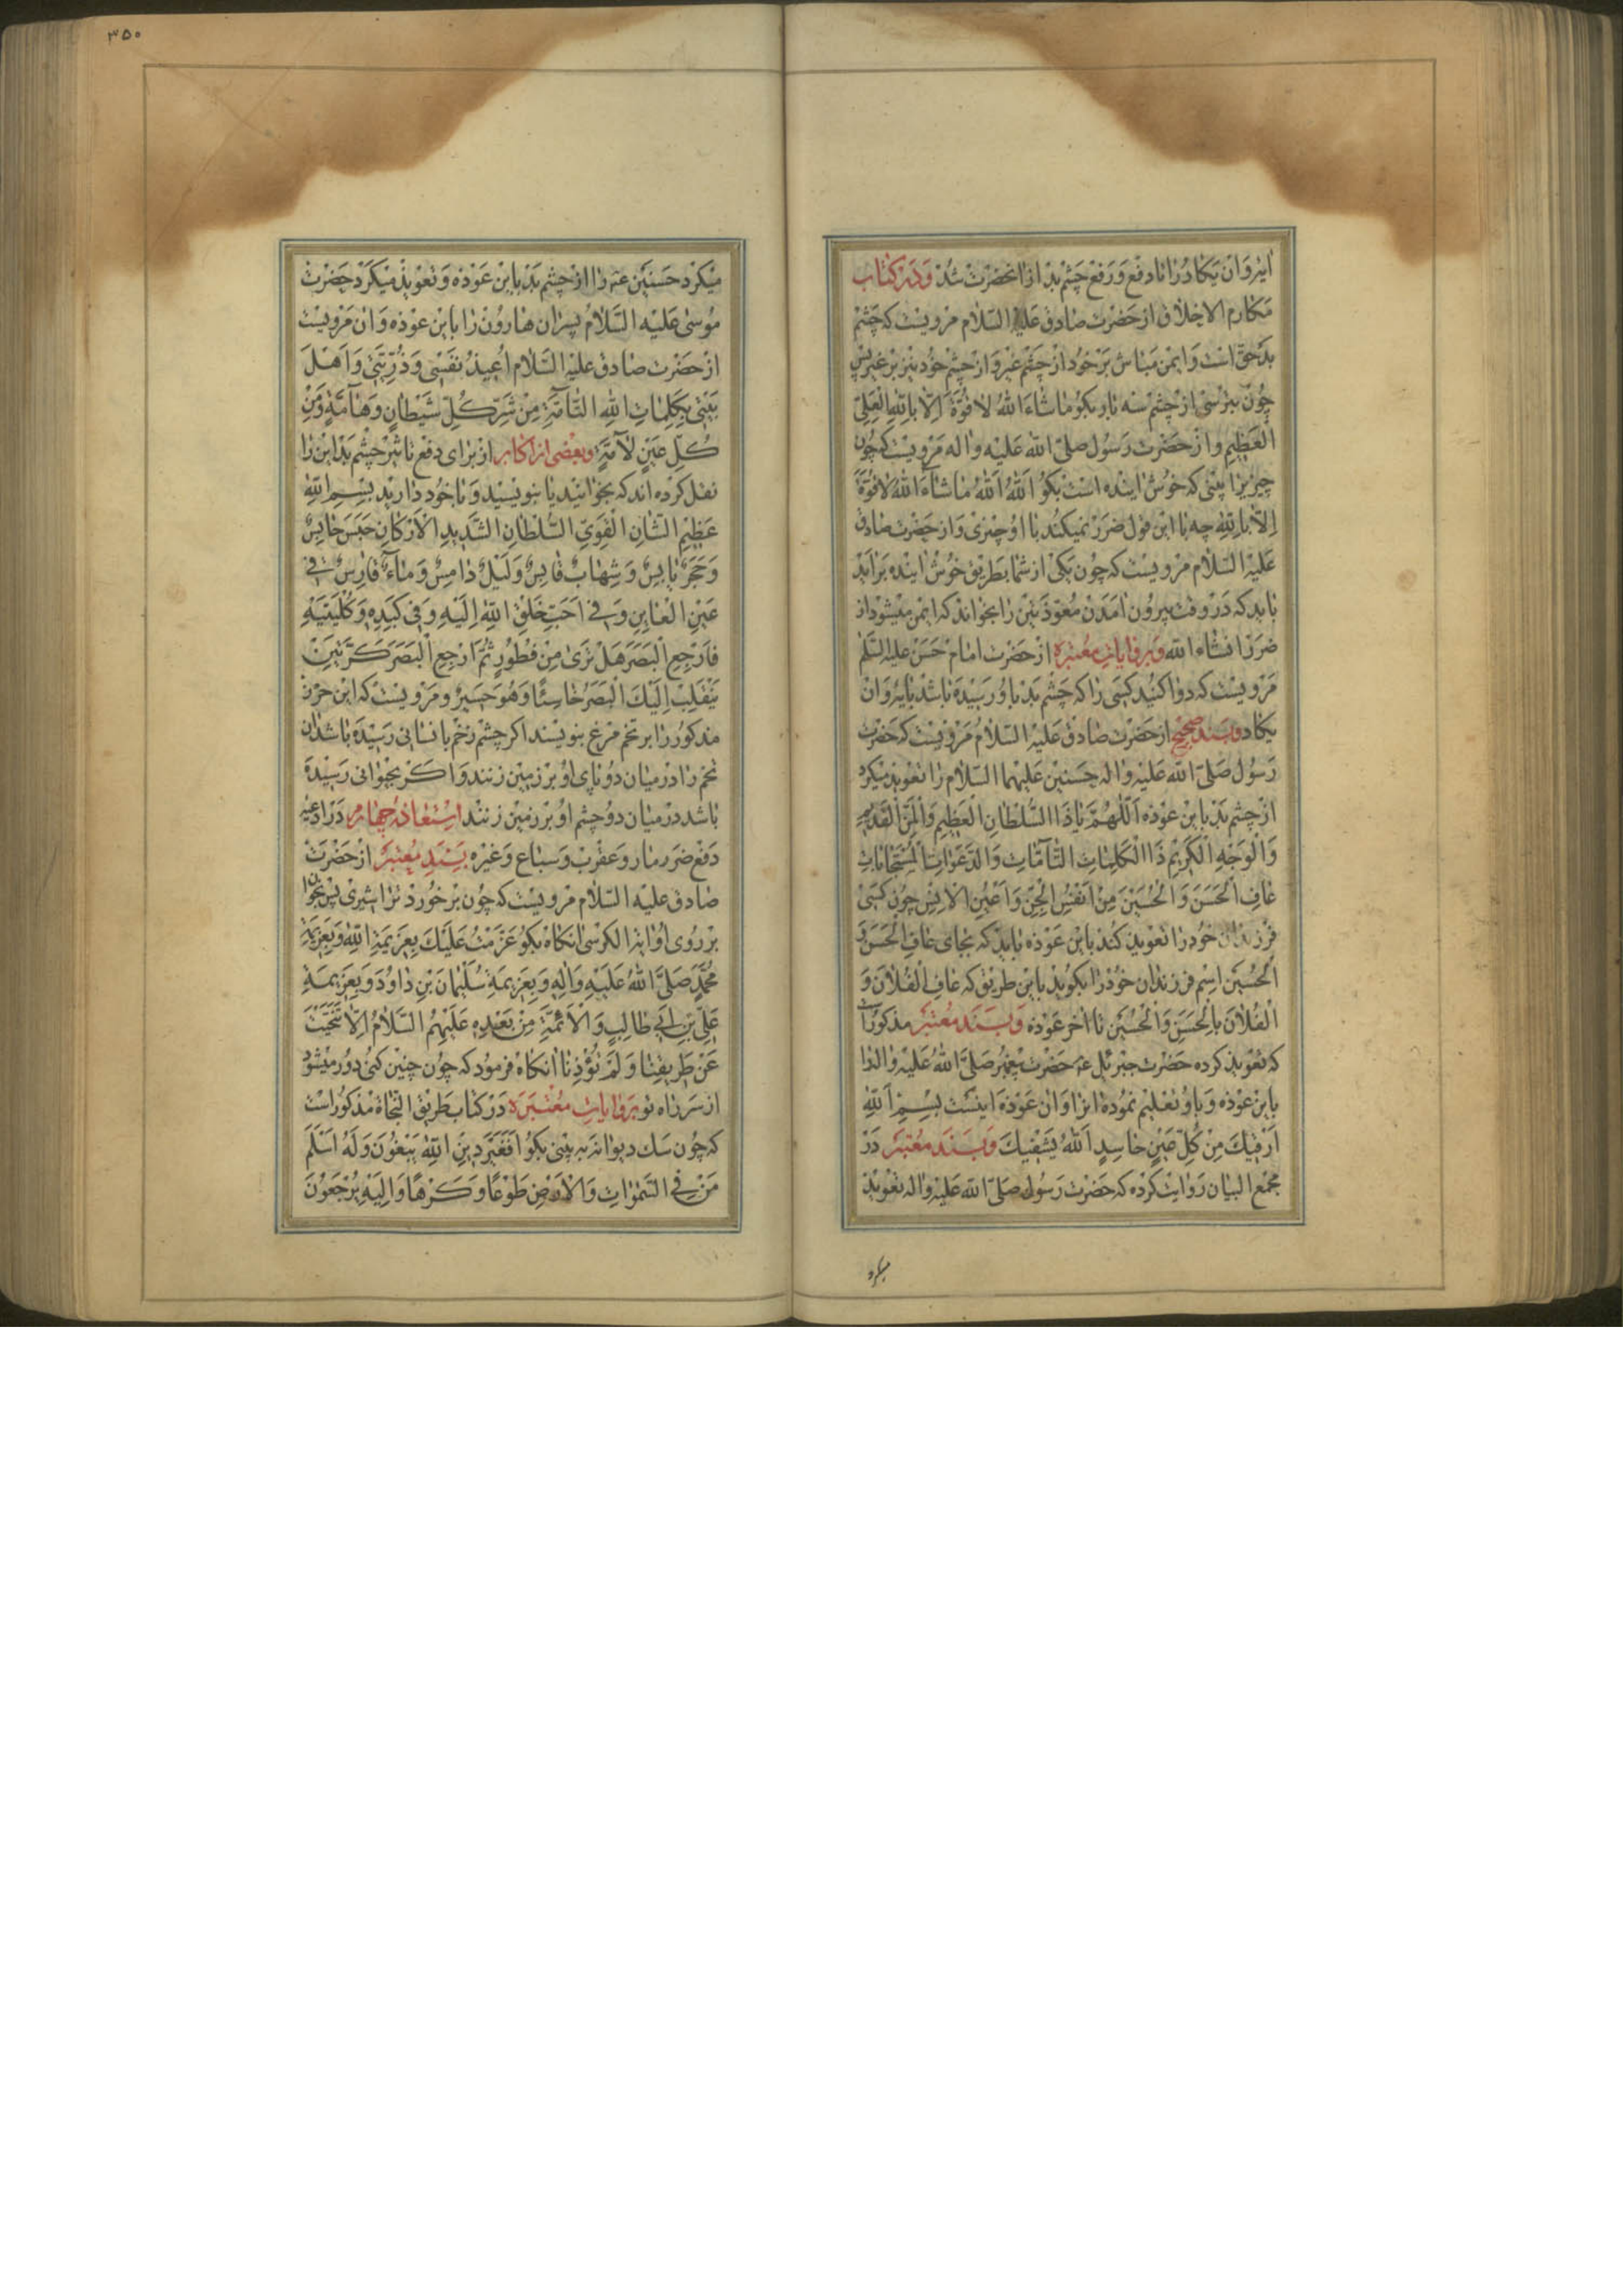 ایه وَان یکاد را تا دفع و رفع چشم بد از انحضرت شد و در کتاب
مکارم الاخلاق از حضرت صادق علیه السلام مرویست که چشم
بد حق است و ایمن مباش بر خود از چشم غیر و از چشم خود نیز بر غیر پس
چون بترسی از چشم سه بار بکو ما شاء الله لا قوة الا بالله العلی
العظیم و از حضرت رسول صلی الله علیه واله مرویست که چون
چیزیرا بینی که خوش اینده است بکو الله الله ما شاء الله لا قوة
الا بالله چه با این قول ضرر نمیکند با او چیزی و از حضرت صادق
علیه السلام مرویست که چون یکی از شما بطریق خوش اینده براید
باید که در وقت بیرون امدن معوذتین را بخواند که ایمن میشود از
ضرر انشاء الله و بروایات معتبره از حضرت امام حسن علیه السلم
مرویست که دوا کنید کسی را که چشم بد باو رسیده باشد بایه وان
یکاد و بسند صحیح از حضرت صادق علیه السلام مرویست که حضرت
رسول صلی الله علیه واله حسنین علیهما السلام را تعویذ میکرد
از چشم بد باین عوذه اللهم یا ذا السلطان العظیم والمن القدیم
والوجه الکریم ذا الکلمات التامات والدعوات المستجابات
عاف الحسن والحسین من انفس الجن واعین الانس چون کسی
فرزندان خود را تعویذ کند باین عوذه باید که بجای عاف الحسن و
الحسین اسم فرزندان خود را بکوید باین طریق که عاف الفلان و
الفلان بالحسن والحسین تا اخر عوذه و بسند معتبر مذکور است
که تعویذ کرده حضرت جبرئل ع حضرت پیغمبر صلی الله علیه واله را
باین عوذه و باو تعلیم نموده انرا و ان عوذه اینست بسم الله
ارقیک من کل عین حاسد الله یشفیک و بسند معتبر در
مجمع البیان روایت کرده که حضرت رسول صلی الله علیه واله تعویذ
میکرد
۳۵۰
میکرد حسنین ع را از چشم بد باین عوذه و تعویذ میکرد حضرت
موسی علیه السلام پسران هارون را باین عوذه و ان مرویست
از حضرت صادق علیه السلام اعیذ نفسی وذریتی واهل
بیتی بکلمات الله التامة من شر کل شیطان وهامة ومن
کل عین لامة و بعضی از اکابر از برای دفع تاثیر چشم بد این را
نقل کرده اند که بخوانید یا بنویسید و با خود دارید بسم الله
عظیم الشان القوی السلطان الشدید الارکان حبس حابس
وحجر یابس وشهاب قابس ولیل دامس وماء قارس فی
عین العاین وفی احب خلق الله الیه وفی کبده وکلیتیه
فارجع البصر هل تری من فطور ثم ارجع البصر کرتین
ینقلب الیک البصر خاسئا وهو حسیر و مرویست که این حرز
مذکور را بر تخم مرغ بنویسند اکر چشم زخم بانسانی رسیده باشد ان
تخم را در میان دو پای او بر زمین زنند و اکر بحیوانی رسیده
باشد در میان دو چشم او بر زمین زنند استعاذه چهارم در ادعیه
دفع ضرر مار و عقرب و سباع و غیره بسند معتبر از حضرت
صادق علیه السلام مرویست که چون بر خورد ترا شیری پس بخوان
بر روی او ایة الکرسی انکاه بکو عزمت علیک بعزیمة الله وبعزیمة
محمد صلی الله علیه واله وبعزیمة سلیمان بن داود وبعزیمة
علی بن ابی طالب والائمة من بعده علیهم السلام الا تنحیت
عن طریقنا ولم تؤذنا انکاه فرمود که چون چنین کنی دور میشود
از سر راه تو بروایات معتبره در کتاب طریق النجاة مذکور است
که چون سک دیوانه به بینی بکو افغیر دین الله یبغون وله اسلم
من فی السموات والارض طوعا وکرها والیه یرجعون